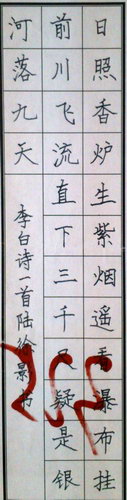 日照香炉生紫烟遥看瀑布挂
前川飞流直下三千尺疑是银
河落九天
李白诗一首陆景书